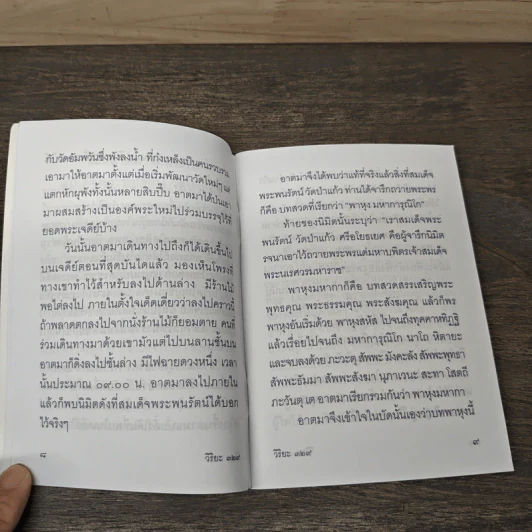 กับวัดอัมพวันซึ่งพังลงน้ำ ที่กุ๋งเหล็งเป็นคนรวบรวม
เอามาให้อาตมาตั้งแต่เมื่อเริ่มพัฒนาวัดใหม่ๆ
แตกหักผุพังทั้งนั้นหลายสิบปี๊บ อาตมาได้บันเอา
มาผสมสร้างเป็นองค์พระใหม่ไปร่วมบรรจุไว้ที่
ยอดพระเจดีย์บ้าง
วันนั้นอาตมาเดินทางไปถึงก็ได้เดินขึ้นไป
บนเจดีย์ตอนที่สุดบันไดแล้ว มองเห็นโพรงที่
ทางเขาทำไว้สำหรับลงไปด้านล่าง มีร้านไม้
พอไต่ลงไป ภายในตั้งใจเด็ดเดี่ยวว่าลงไปคราวนี้
ถ้าพลาดตกลงไปจากนั่งร้านไม้ก็ยอมตาย คนที่
ร่วมเดินทางมาด้วยเขามัวแต่ไปบนลานชั้นบน
อาตมาก็ดิ่งลงไปชั้นล่าง มีไฟฉายดวงหนึ่ง เวลา
นั้นประมาณ ๐๙.๐๐ น. อาตมาลงไปภายใน
แล้วก็พบนิมิตดังที่สมเด็จพระพนรัตน์ได้บอก
ไว้จริงๆ
๘
วิริยะ ๓๒๙
อาตมาจึงได้พบว่าแท้ที่จริงแล้วสิ่งที่สมเด็จ
พระพนรัตน์ วัดป่าแก้ว ท่านได้จารึกถวายพระพร
ก็คือ บทสวดที่เรียกว่า "พาหุง มหาการุณิโก"
ท้ายของนิมิตนั้นระบุว่า "เราสมเด็จพระ
พนรัตน์ วัดป่าแก้ว ศรีอโยธเยศ คือผู้จารึกนิมิต
รจนาเอาไว้ถวายพระพรแด่มหาบพิตรเจ้าสมเด็จ
พระนเรศวรมหาราช"
พาหุงมหากาก็คือ บทสวดสรรเสริญพระ
พุทธคุณ พระธรรมคุณ พระสังฆคุณ แล้วก็พร
พาหุงอันเริ่มด้วย พาหุงสหัส ไปจนถึงทุคคาหทิฏฐิ
แล้วเรื่อยไปจนถึง มหาการุณิโก นาโถ หิตายะ
และจบลงด้วย ภะวะตุ สัพพะ มังคะลัง สัพพะพุทธา
สัพพะธัมมา สัพพะสังฆา นุภาเวนะ สะทา โสตถี
ภะวันตุ เต อาตมาเรียกรวมกันว่า พาหุงมหากา
อาตมาจึงเข้าใจในบัดนั้นเองว่าบทพาหุงนี้
๙
วิริยะ ๓๒๙